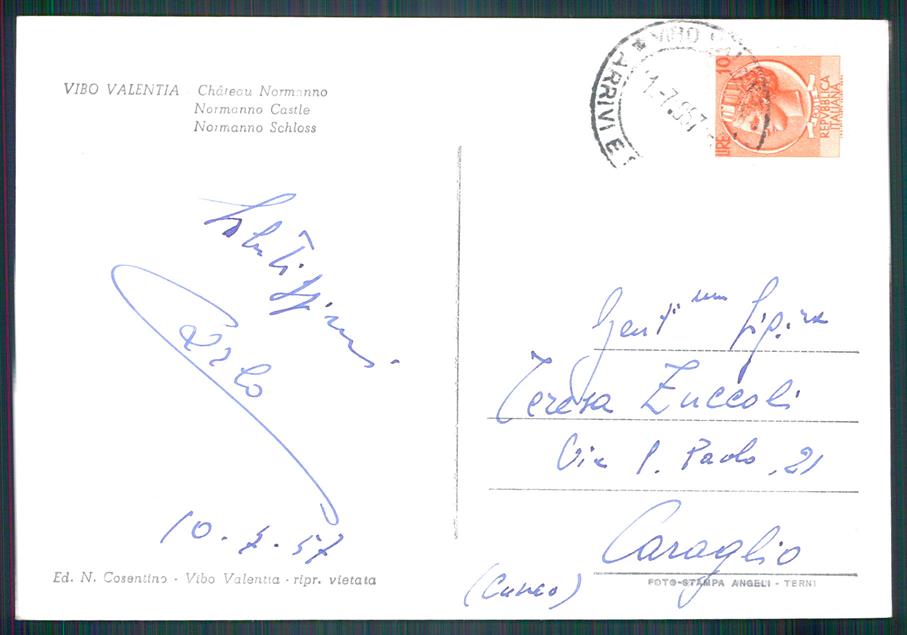 VIBO VALENTIA Château Normanno
Normanno Castle
Normanno Schloss
Carlo
10.7.57
Ed. N. Cosentino - Vibo Valentia - ripr. vietata
VIBO
ARRIVI E
LIRE 10
POSTE
REPVBBLICA
ITALIANA
Teresa Zuccoli
Via S. Paolo, 21
Caraglio
(Cuneo)
FOTO-STAMPA ANGELI - TERNI